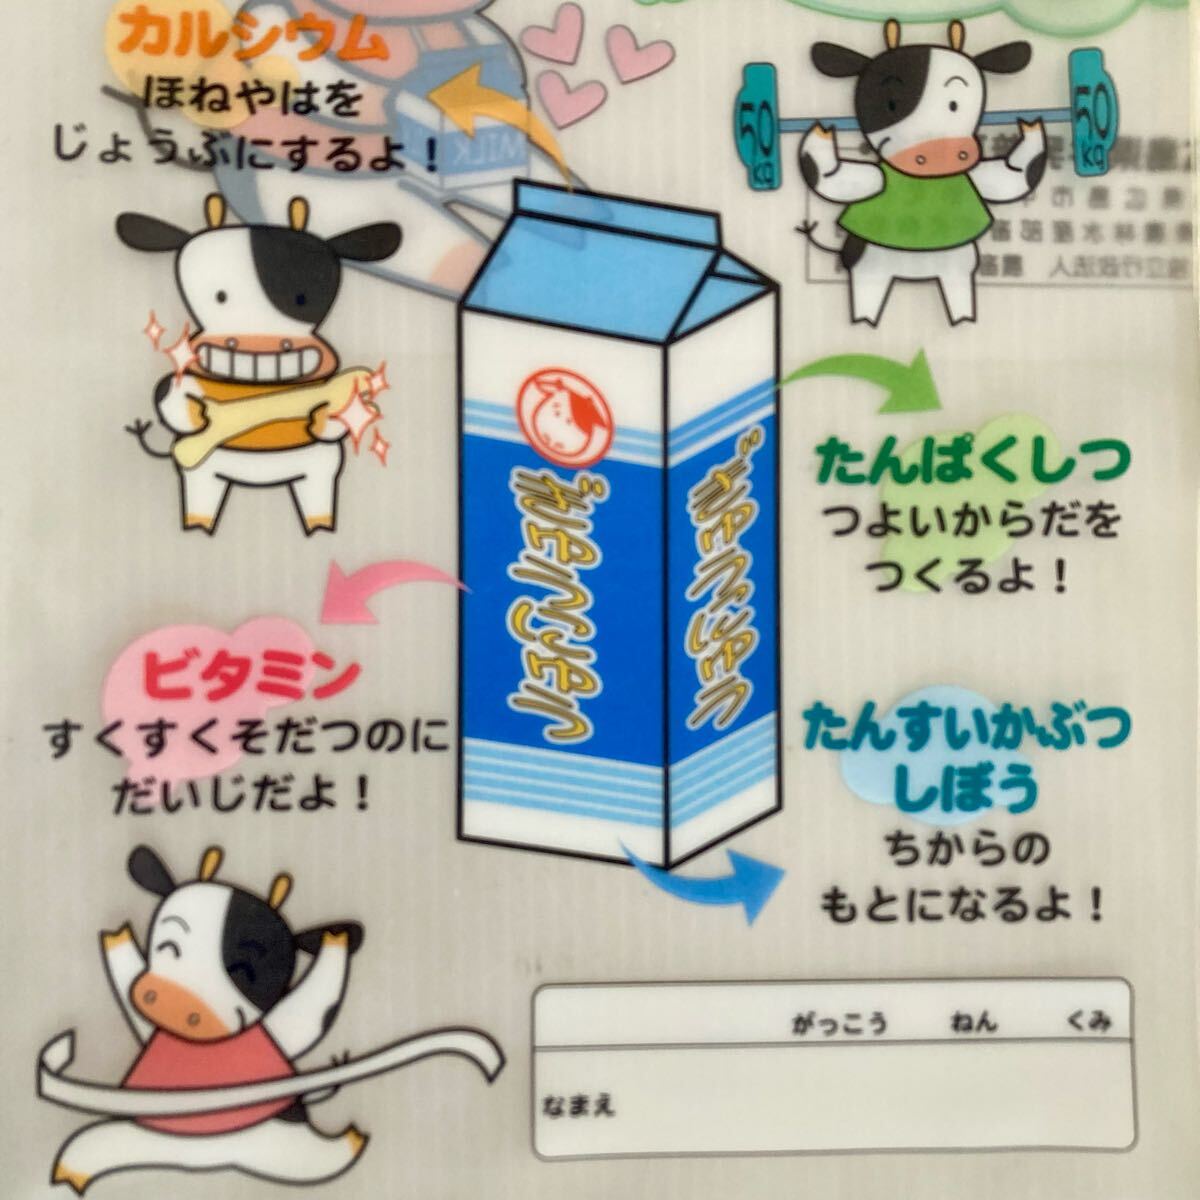 カルシウム
ほねやはを
じょうぶにするよ！
MILK
50
kg
50
kg
たんぱくしつ
つよいからだを
つくるよ！
ぎゅうにゅう
ぎゅうにゅう
ビタミン
すくすくそだつのに
だいじだよ！
たんすいかぶつ
しぼう
ちからの
もとになるよ！
がっこう ねん くみ
なまえ